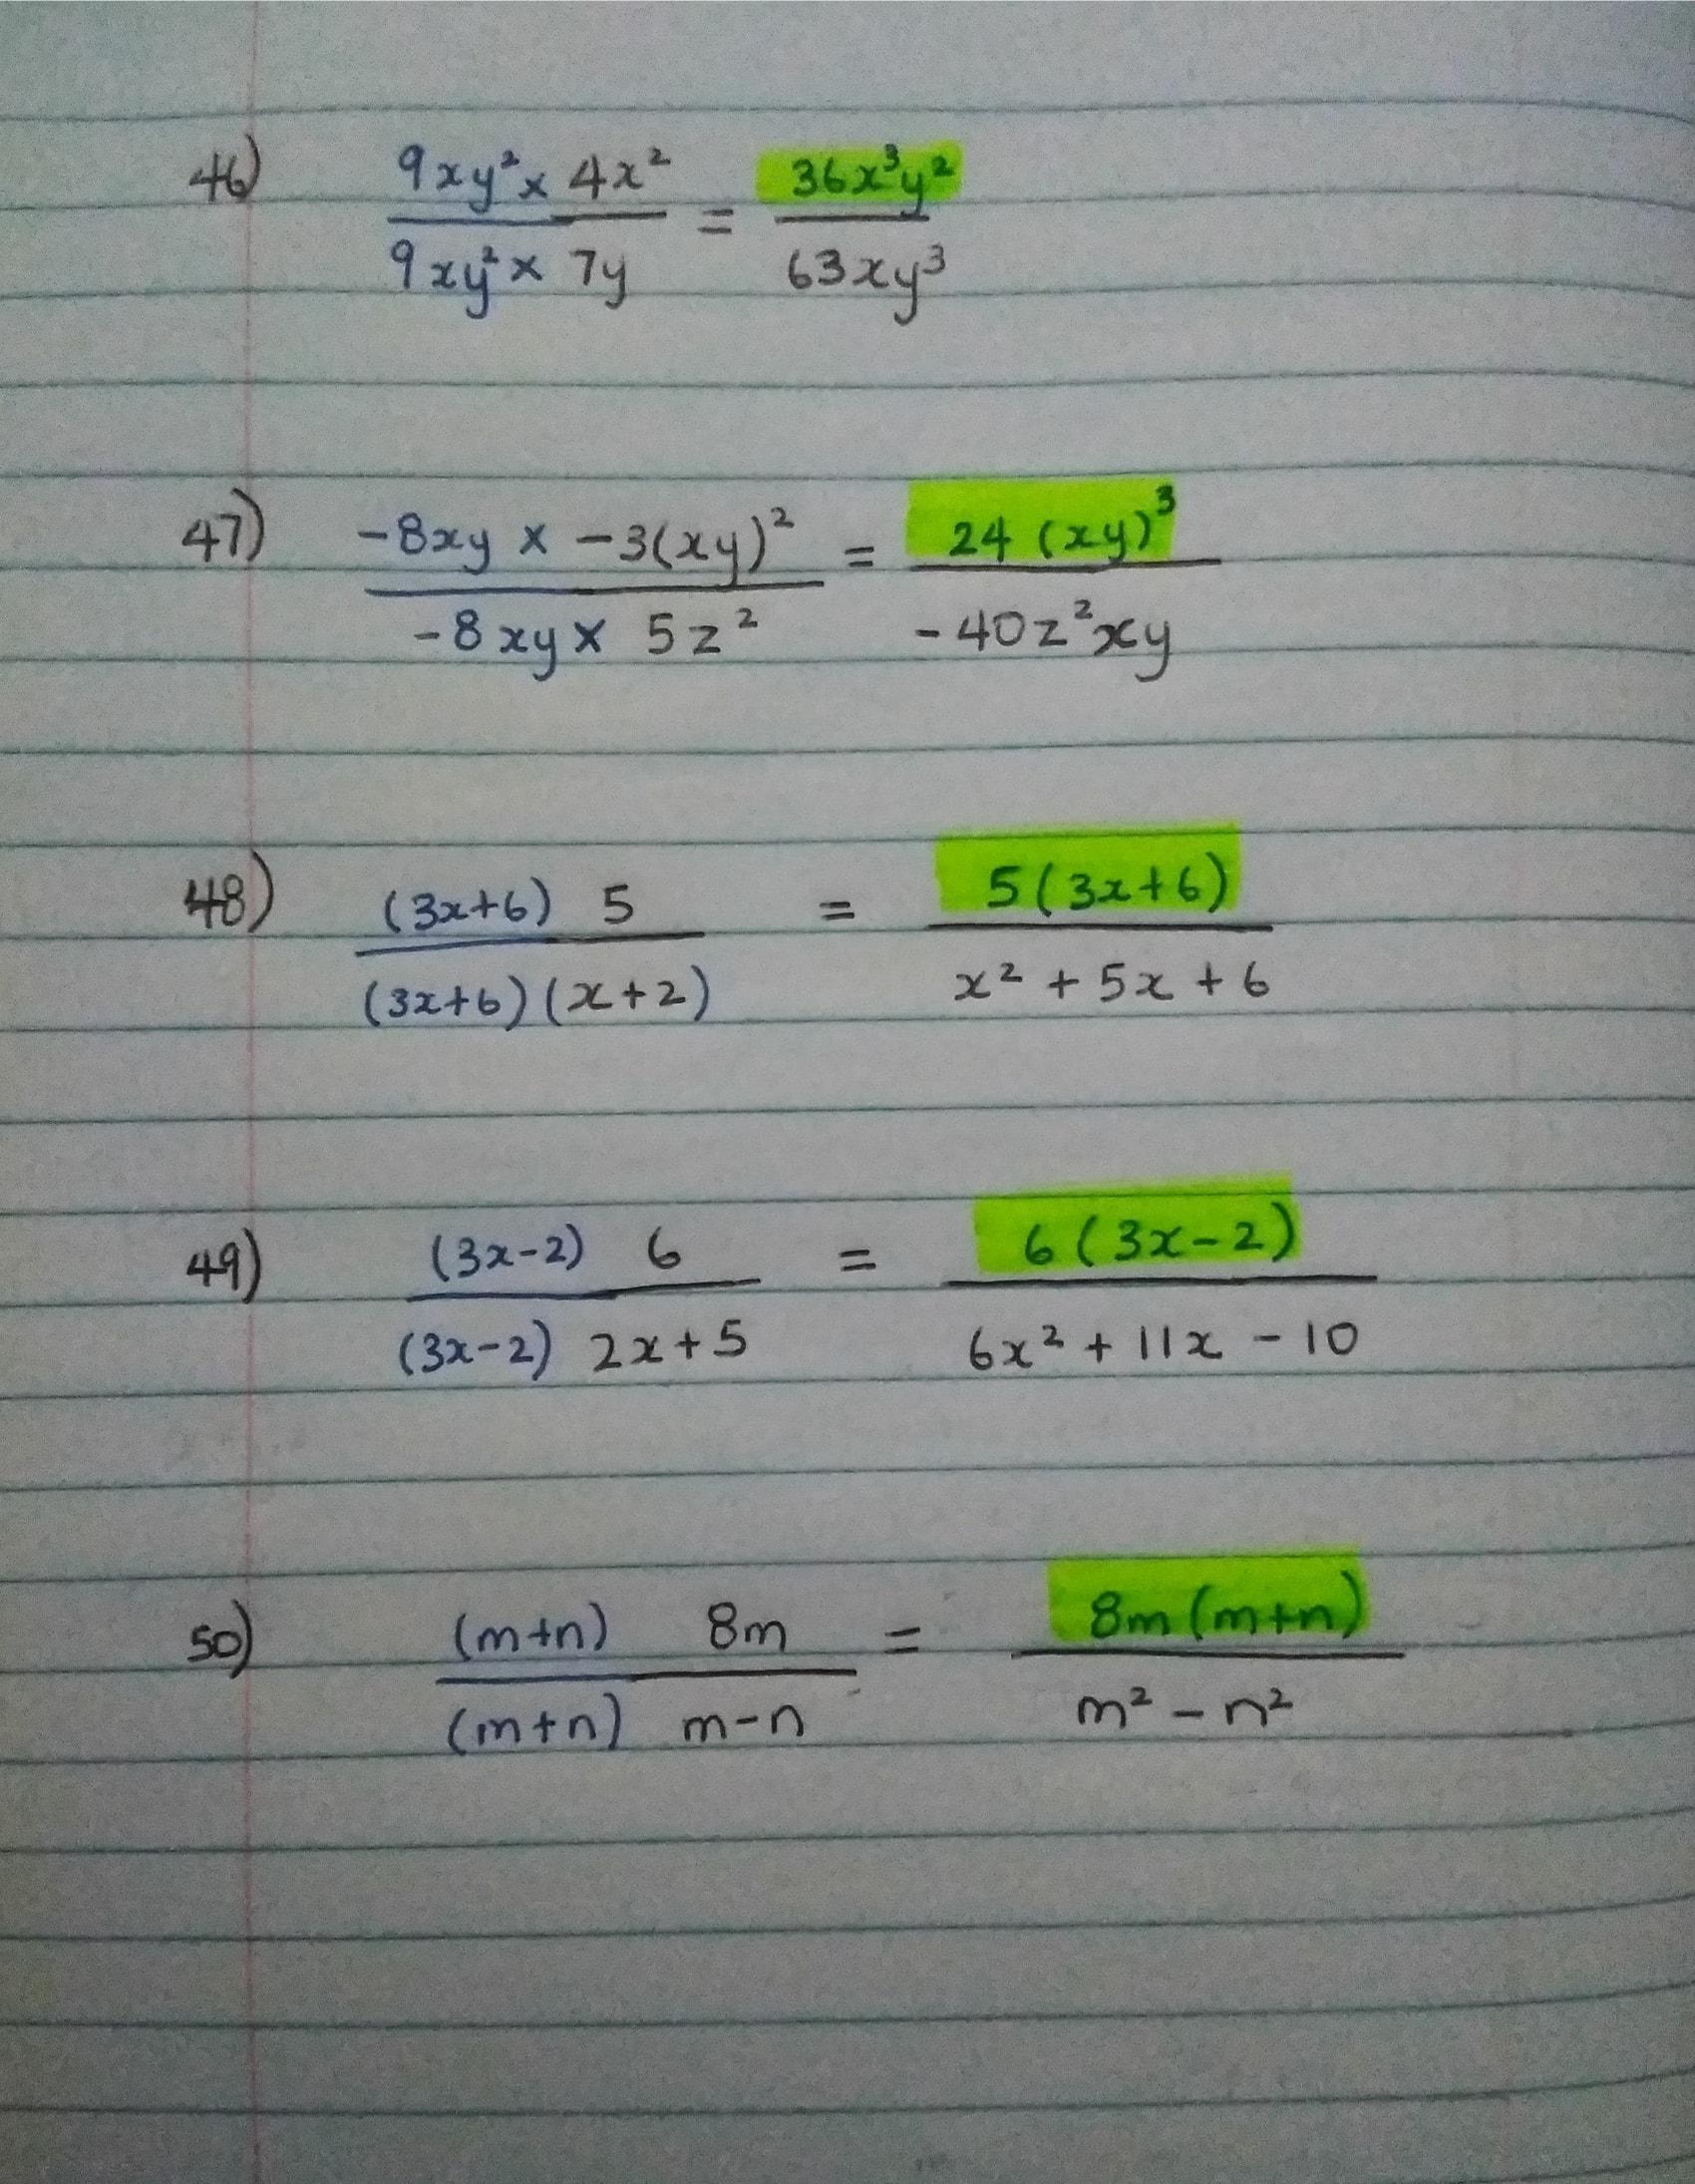 46) 9xy² × 4x² / 9xy² × 7y = 36x³y² / 63xy³
47) -8xy × -3(xy)² / -8xy × 5z² = 24(xy)³ / -40z²xy
48) (3x+6) 5 / (3x+6)(x+2) = 5(3x+6) / x² + 5x + 6
49) (3x-2) 6 / (3x-2) 2x+5 = 6(3x-2) / 6x² + 11x - 10
50) (m+n) 8m / (m+n) m-n = 8m(m+n) / m² - n²